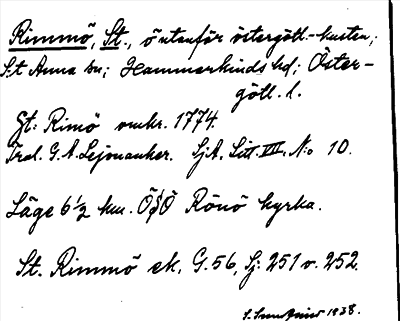 Rimmö, St., ö utanför östergötl.-kusten;
S:t Anna sn; Hammarkinds hd; Öster-
götl. l.
Gt: Rimö omkr. 1774.
Trol. G. A. Lejonanker. SjA, Litt. VII, N:o 10.
Läge 6 1/2 km. Ö§Ö Rönö kyrka.
St. Rimmö ek, G. 56, Sj: 251 o. 252.
1938.